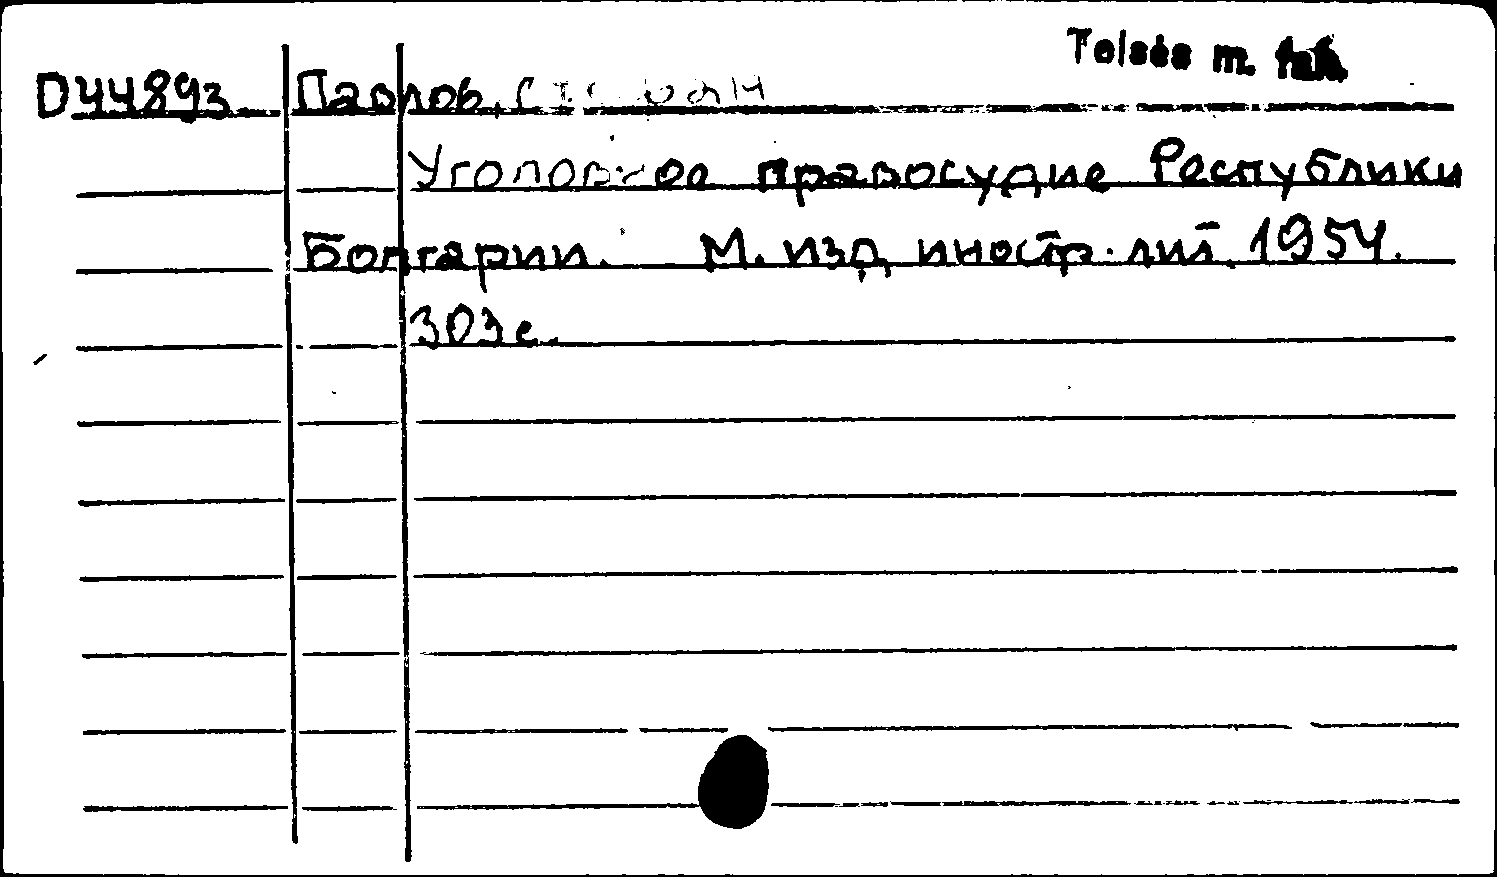 Teisės m. fak.
D44893 Павлов, Стефан
Уголовное правосудие Республики
Болгарии. М. изд, иностр. лит. 1954.
303 с.